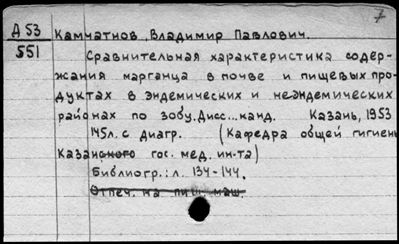 7
Д 53 Камчатнов, Владимир Павлович.
551
Сравнительная характеристика содер-
жания марганца в почве и пищевых про-
дуктах в эндемических и неэндемических
районах по зобу. Дисс... канд. Казань, 1953
145л. с диагр. (Кафедра общей гигиены
Казанского гос. мед. ин-та)
Библиогр.: л. 134-144.
Отпеч. на пиш. маш.